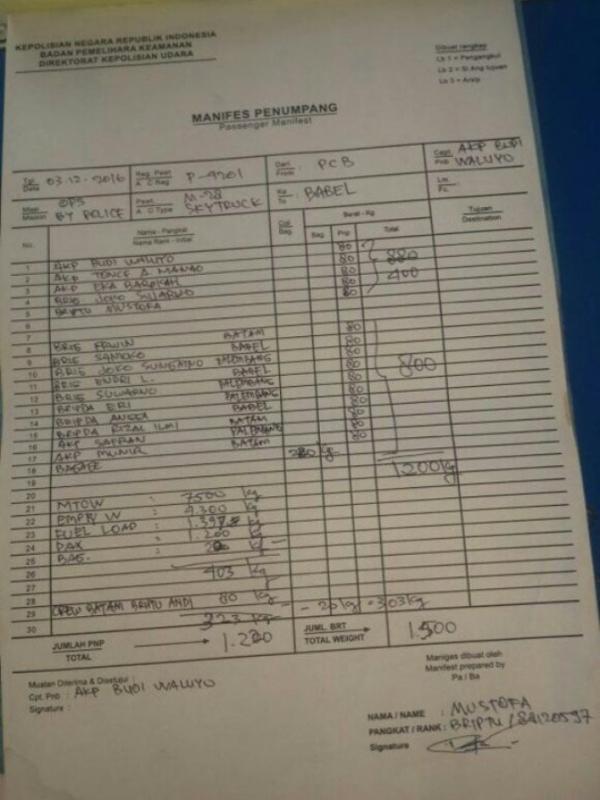 KEPOLISIAN NEGARA REPUBLIK INDONESIA
BADAN PEMELIHARA KEAMANAN
DIREKTORAT KEPOLISIAN UDARA
Dibuat rangkap
Lb 1 = Pengangkut
Lb 2 = St Ang tujuan
Lb 3 = Arsip
MANIFES PENUMPANG
Passenger Manifest
Tgl Date 03.12.2016 Reg. Pswt A C Reg P-4201 Dari From PCB Capt. Pnb AKP BUDI WALUYO
Misi Mission OPS BY POLICE Pswt. A C Type M-28 SKYTRUCK Ke To BABEL
No. Nama - Pangkat Name Rank - Initial Col Bag Berat - Kg Tujuan Destination
Bag Pnp Total
1 AKP BUDI WALUYO 80
2 AKP TENCE A MANAO 80
3 AKP EKA BAROKAH 80 400
4 BRIG JOKO SUJARWO 80
5 BRIPTU MUSTOFA
6
7
8 BRIG ERWIN BATAM 80
9 BRIG SANTOKO BABEL 80
10 BRIG JOKO SUNGATNO PALEMBANG 80
11 BRIG ENDRI L. BABEL 80 800
12 BRIG SUWARNO PALEMBANG 80
13 BRIPDA ERI PALEMBANG 80
14 BRIPDA ANGGA BABEL 80
15 BRIPDA RIZAL ILMI BATAM 80
16 AKP SAFRAN PALEMBANG 80
17 AKP MUNIR BATAM 80
18 BAGASE kg 1200 kg
19
20
21 MTOW : 7500 kg
22 EMPTY W : 4.300 kg
23 FUEL LOAD : kg
24 PAX : 1.200 kg
25 BAG. : kg
26 403 kg
27
28 80 kg
29 CREW BATAM BRIPTU ANDI 323 kg - 20 kg = 303 kg
30
JUMLAH PNP TOTAL JUML. BRT TOTAL WEIGHT
Muatan Diterima & Disetujui :
Cpt. Pnb : AKP BUDI WALUYO
Signature :
Manifes dibuat oleh
Manifest prepared by
Pa / Ba
NAMA / NAME : MUSTOFA
PANGKAT / RANK : BRIPTU / 88120597
Signature